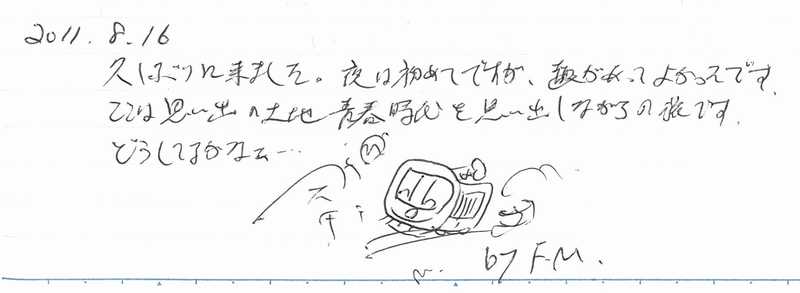 2011.8.16
久しぶりに来ました。夜は初めてですが、趣があってよかったです.
ここは思い出の土地 青春時代を思い出しながらの旅です.
どうしてるかなァ…
by F.M.